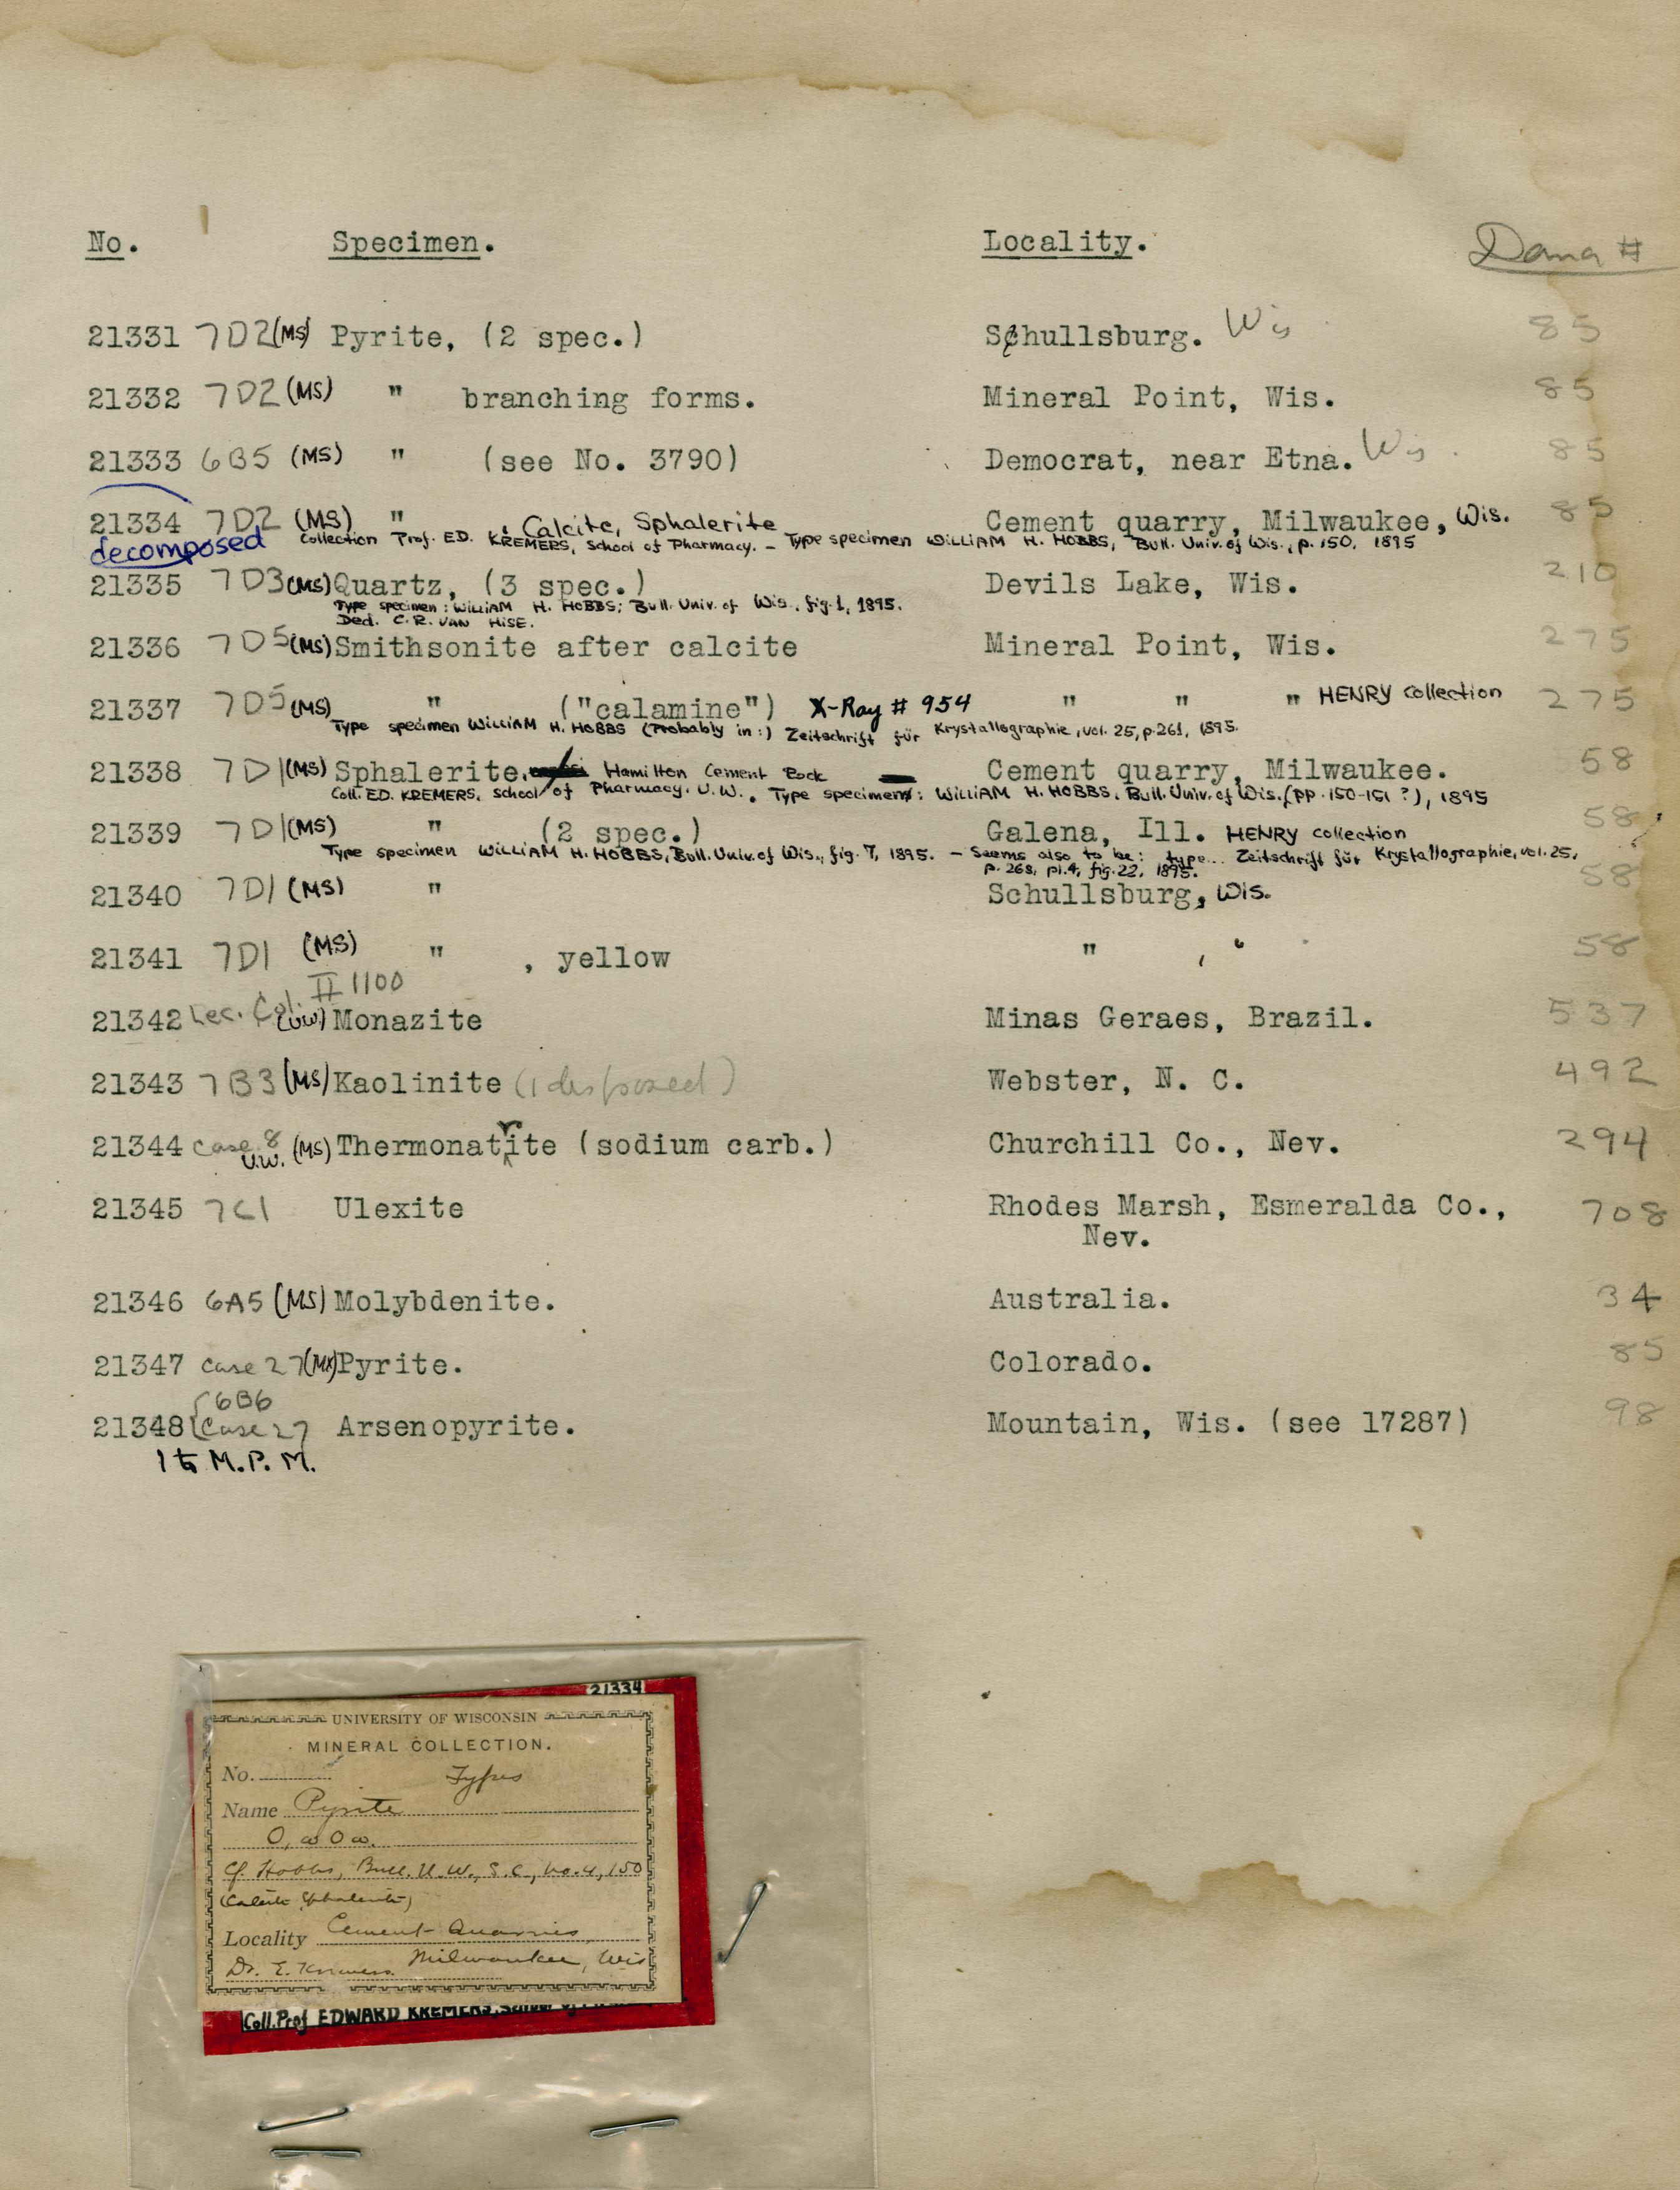 No. Specimen. Locality. Dana #
21331 7D2 (MS) Pyrite, (2 spec.) Schullsburg. Wis 85
21332 7D2 (MS) " branching forms. Mineral Point, Wis. 85
21333 6B5 (MS) " (see No. 3790) Democrat, near Etna. Wis. 85
21334 7D2 (MS) " , Calcite, Sphalerite Cement quarry, Milwaukee, Wis. 85
decomposed Collection Prof. ED. KREMERS, School of Pharmacy. - Type specimen WILLIAM H. HOBBS, Bull. Univ. of Wis., p. 150, 1895
21335 7D3 (MS) Quartz, (3 spec.) Devils Lake, Wis. 210
Type specimen: WILLIAM H. HOBBS; Bull. Univ. of Wis., fig. 1, 1895.
Ded. C.R. VAN HISE.
21336 7D5 (MS) Smithsonite after calcite Mineral Point, Wis. 275
21337 7D5 (MS) " ("calamine") X-Ray # 954 " " " HENRY collection 275
Type specimen WILLIAM H. HOBBS (Probably in:) Zeitschrift für Krystallographie, vol. 25, p.261, 1895.
21338 7D1 (MS) Sphalerite. Hamilton Cement Rock Cement quarry, Milwaukee. 58
Coll. ED. KREMERS, School of Pharmacy. U.W.. Type specimen: WILLIAM H. HOBBS, Bull. Univ. of Wis. (pp. 150-151 ?), 1895
21339 7D1 (MS) " (2 spec.) Galena, Ill. HENRY collection 58
Type specimen WILLIAM H. HOBBS, Bull. Univ. of Wis., fig. 7, 1895. - Seems also to be: type... Zeitschrift für Krystallographie, vol. 25,
p. 268, pl. 4, fig. 22, 1895.
21340 7D1 (MS) " Schullsburg, Wis. 58
21341 7D1 (MS) " , yellow " , " 58
II 1100
21342 Lec. Col. (UW) Monazite Minas Geraes, Brazil. 537
21343 7B3 (MS) Kaolinite (1 disposed) Webster, N. C. 492
21344 case 8 U.W. (MS) Thermonatrite (sodium carb.) Churchill Co., Nev. 294
21345 7C1 Ulexite Rhodes Marsh, Esmeralda Co., 708
Nev.
21346 6A5 (MS) Molybdenite. Australia. 34
21347 case 27 Pyrite. Colorado. 85
6B6
21348 Case 27 Arsenopyrite. Mountain, Wis. (see 17287) 98
1 to M.P.M.
21334
UNIVERSITY OF WISCONSIN
MINERAL COLLECTION.
No. Types
Name Pyrite
O, ∞O∞.
Cf. Hobbs, Bull. U.W., S.C., no. 4, 150
(Calcite Sphalerite)
Locality Cement Quarries,
Dr. E. Kremers. Milwaukee, Wis
Coll. Prof EDWARD KREMERS, School of